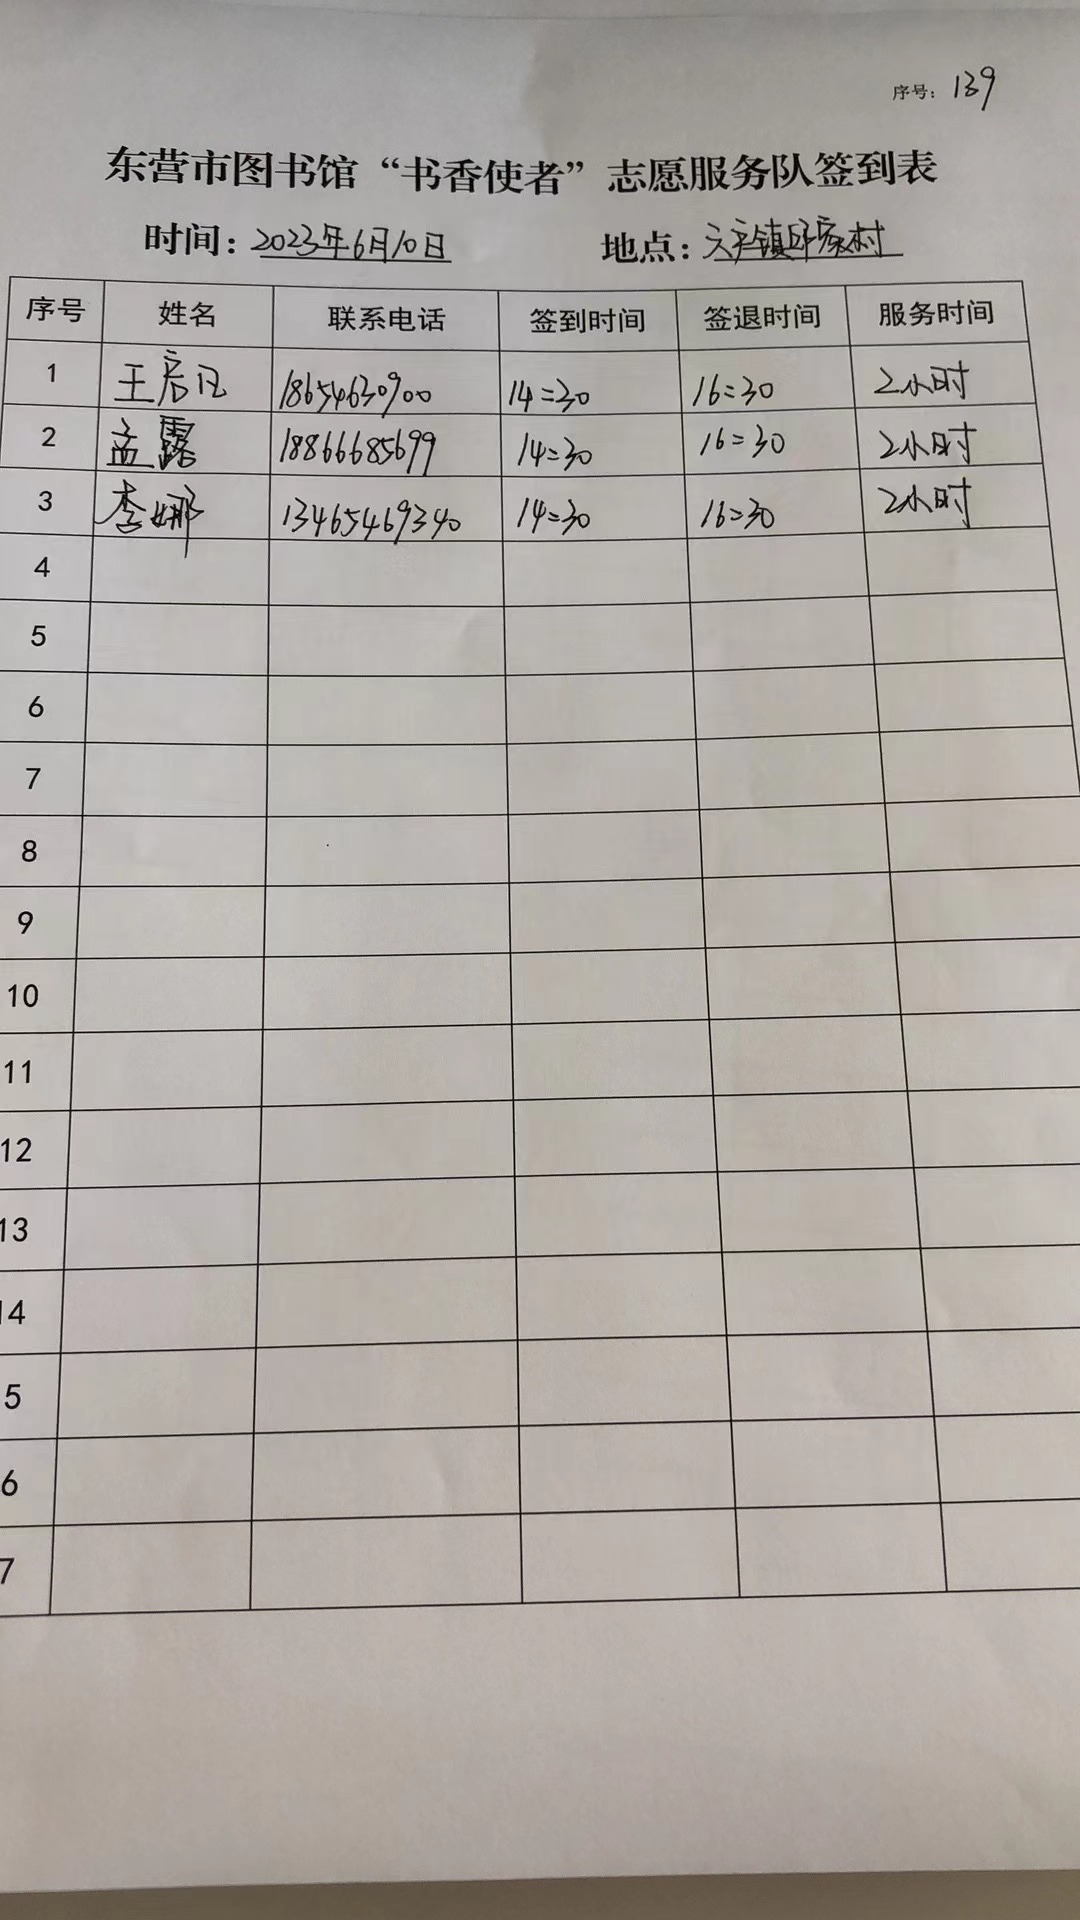 序号：139
东营市图书馆“书香使者”志愿服务队签到表
时间：2023年6月10日 地点：六户镇邱家村
序号 姓名 联系电话 签到时间 签退时间 服务时间
1 王启凡 18654630900 14:30 16:30 2小时
2 孟露 18866685699 14:30 16:30 2小时
3 李娜 13465469340 14:30 16:30 2小时
4
5
6
7
8
9
10
11
12
13
14
5
6
7